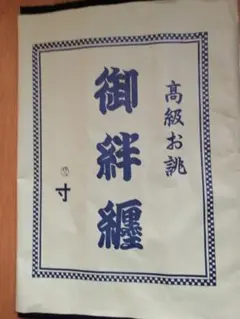 高級お誂
御絆纏
寸